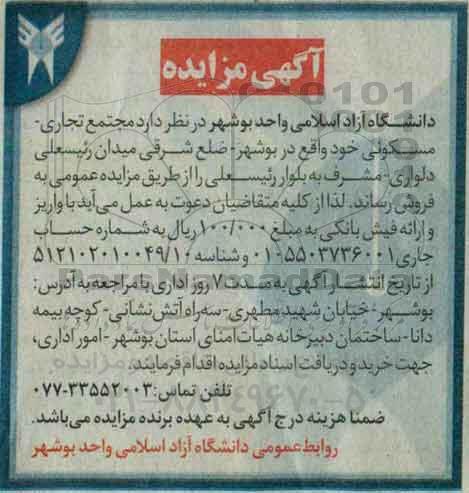 آگهی مزایده
دانشگاه آزاد اسلامی واحد بوشهر در نظر دارد مجتمع تجاری-
مسکونی خود واقع در بوشهر- ضلع شرقی میدان رئیسعلی
دلواری- مشرف به بلوار رئیسعلی را از طریق مزایده عمومی به
فروش رساند. لذا از کلیه متقاضیان دعوت به عمل می‌آید با واریز
و ارائه فیش بانکی به مبلغ ۱۰۰/۰۰۰ ریال به شماره حساب
جاری ۰۱۰۵۵۰۳۷۳۶۰۰۱ و شناسه ۵۱۲۱۰۲۰۱۰۰۴۹/۱۰
از تاریخ انتشار آگهی به مدت ۷ روز اداری با مراجعه به آدرس:
بوشهر- خیابان شهید مطهری- سه‌راه آتش‌نشانی- کوچه بیمه
دانا- ساختمان دبیرخانه هیات امنای استان بوشهر- امور اداری،
جهت خرید و دریافت اسناد مزایده اقدام فرمایند.
تلفن تماس: ۰۷۷-۳۳۵۵۲۰۰۳
ضمنا هزینه درج آگهی به عهده برنده مزایده می‌باشد.
روابط عمومی دانشگاه آزاد اسلامی واحد بوشهر